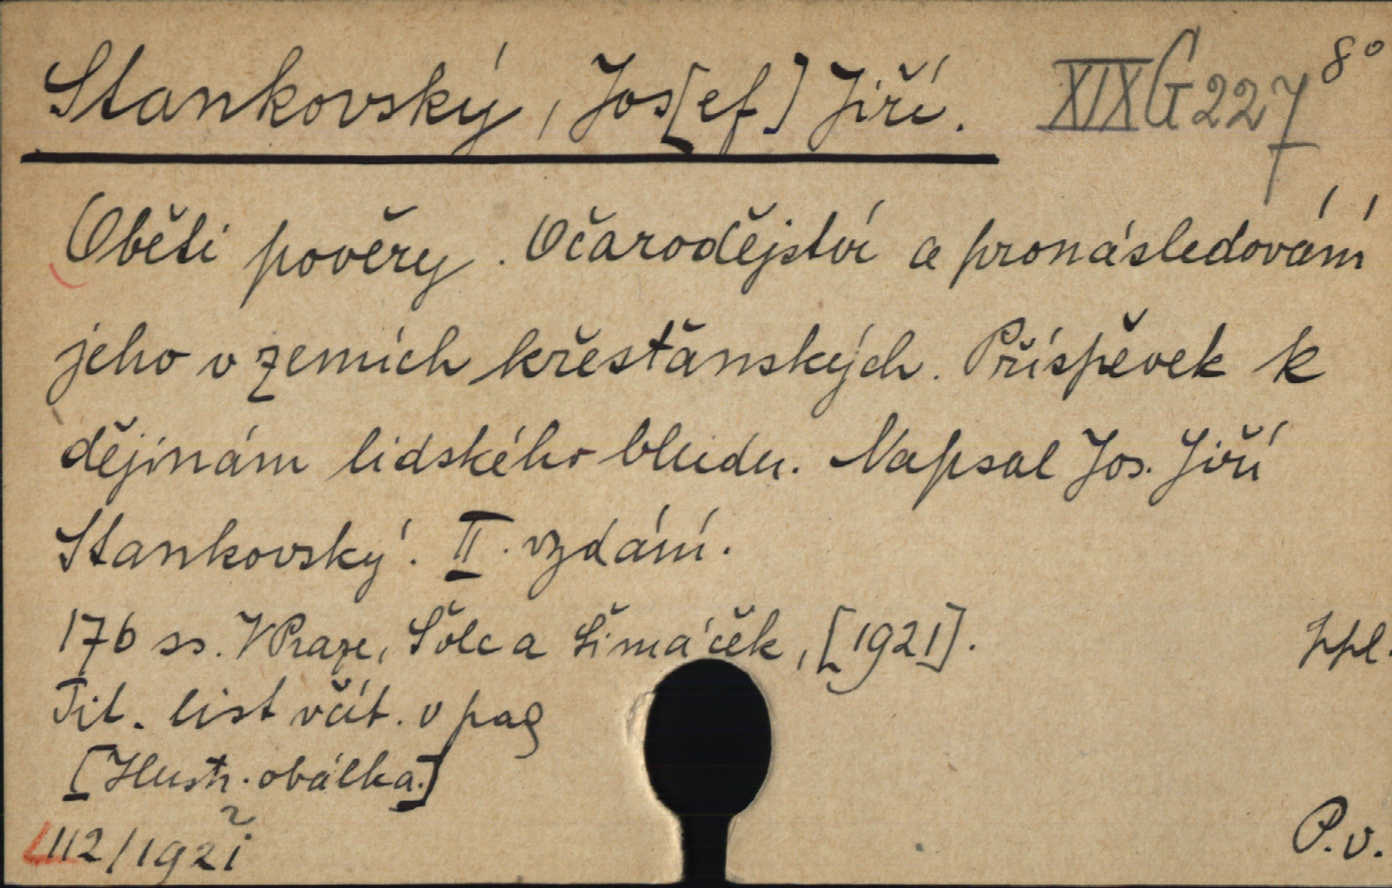 Stankovský, Jos[ef] Jiří. XIX G 227 8°
Oběti pověry. Očarodějství a pronásledování
jeho v zemích křesťanských. Příspěvek k
dějinám lidského bludu. Napsal Jos. Jiří
Stankovský. II. vydání.
176 ss. V Praze, Šolc a Šimáček, [1921]. ppl.
Tit. list včít. v pag
[Illustr. obálka.]
112/1921 P.v.